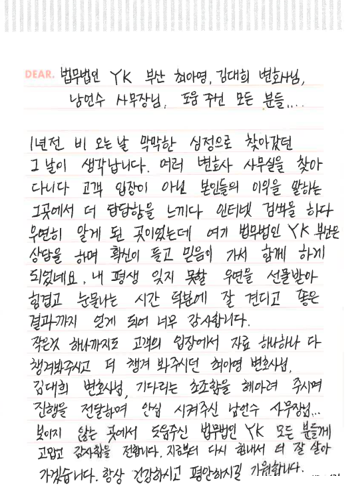 DEAR. 법무법인 YK 부산 최아영, 김대희 변호사님,
남언수 사무장님, 도움 주신 모든 분들....
1년전 비 오는 날 막막한 심정으로 찾아갔던
그 날이 생각납니다. 여러 변호사 사무실을 찾아
다니다 고객 입장이 아닌 본인들의 이익을 말하는
그곳에서 더 답답함을 느끼다 인터넷 검색을 하다
우연히 알게 된 곳이었는데 여기 법무법인 YK 부산은
상담을 하며 확신이 들고 믿음이 가서 함께 하게
되었네요. 내 평생 잊지 못할 우연을 선물받아
힘겹고 눈물나는 시간 덕분에 잘 견디고 좋은
결과까지 얻게 되어 너무 감사합니다.
작은것 하나까지도 고객의 입장에서 자료 하나하나 다
챙겨봐주시고 더 챙겨 봐주시던 최아영 변호사님,
김대희 변호사님, 기다리는 초조함을 헤아려 주시며
진행을 전달하여 안심 시켜주신 남언수 사무장님...
보이지 않는 곳에서 도움주신 법무법인 YK 모든 분들께
고맙고 감사함을 전합니다. 지금부터 다시 힘내서 더 잘 살아
가겠습니다. 항상 건강하시고 평안하시길 기원합니다....